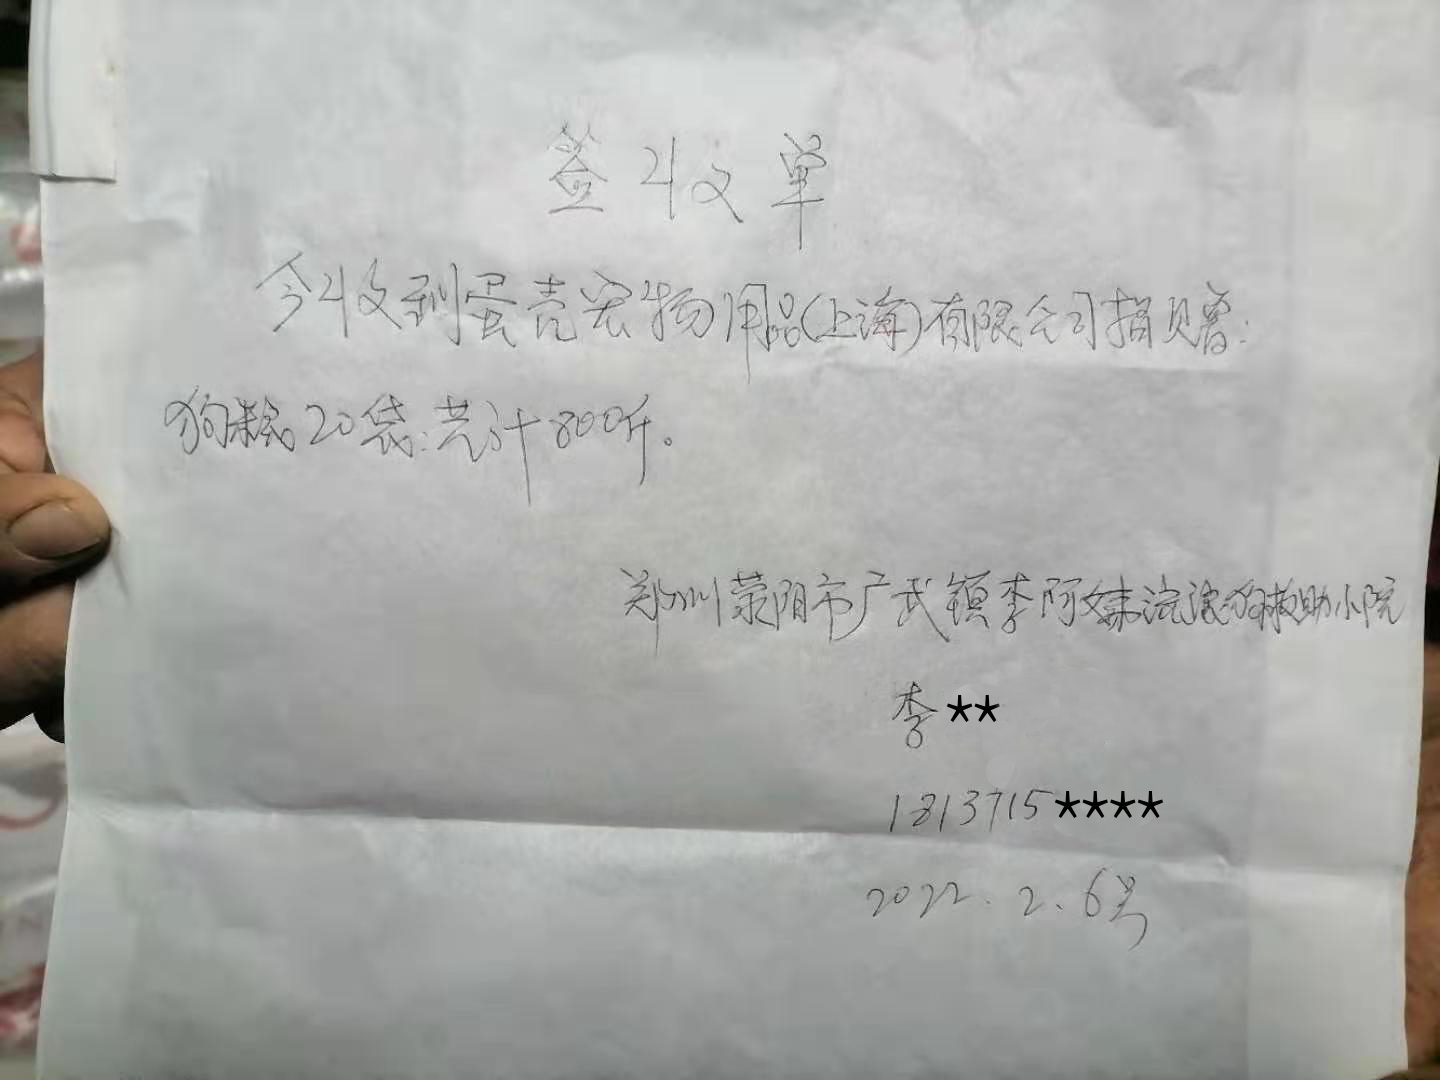 签收单
今收到蛋壳宠物用品(上海)有限公司捐赠:
狗粮20袋:共计800斤。
郑州荥阳市广武镇李阿妹流浪狗救助小院
李**
1813715****
2022.2.6号